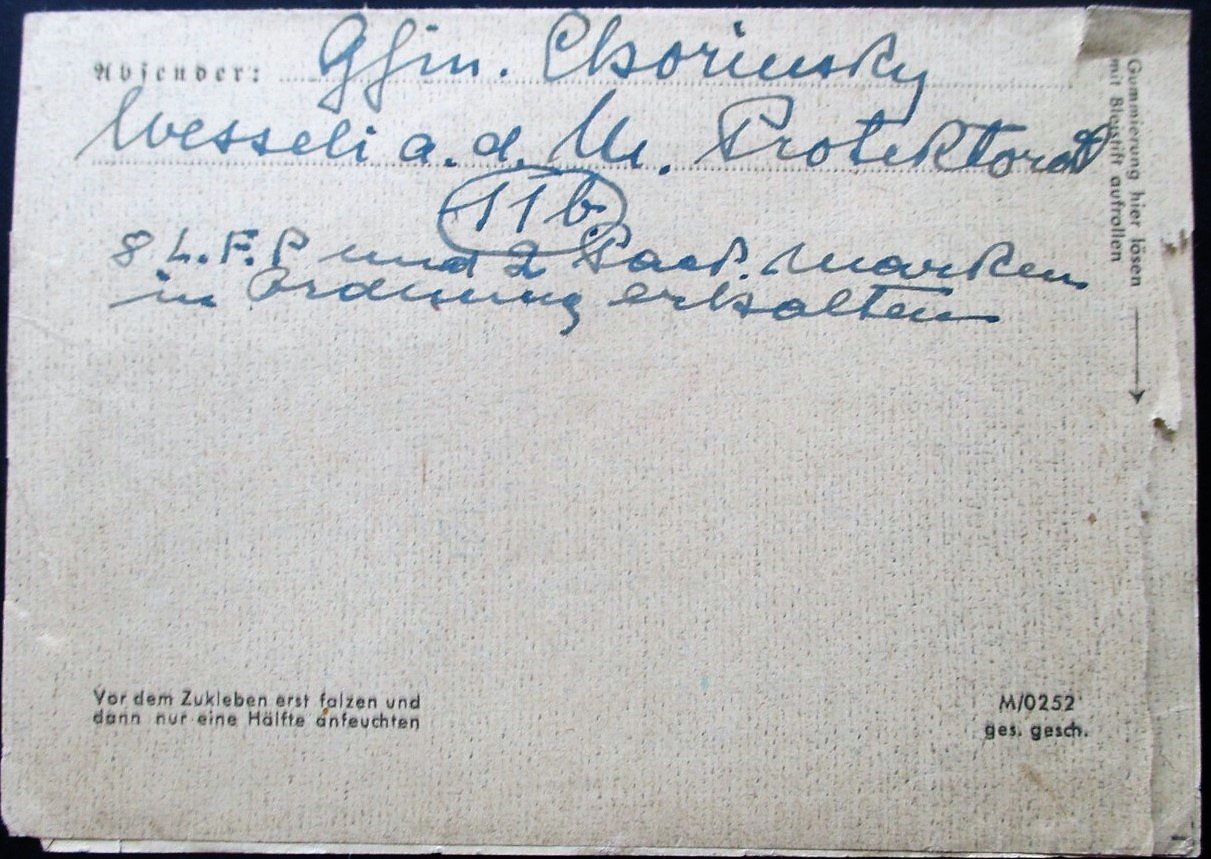 Absender: Gfin. Chorinsky
Wesseli a. d. M. Protektorat
11b
8 L.F.P und 2 Pack. Marken
in Ordnung erhalten
Gummierung hier lösen
mit Bleistift aufrollen
Vor dem Zukleben erst falzen und
dann nur eine Hälfte anfeuchten
M/0252
ges. gesch.